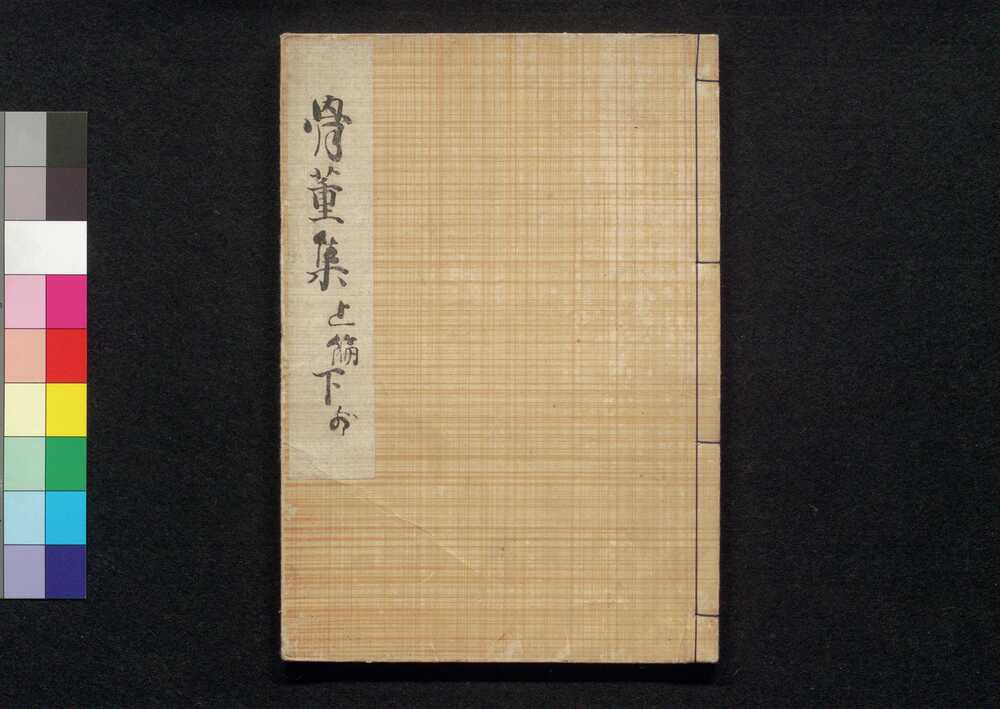 骨董集上編下前